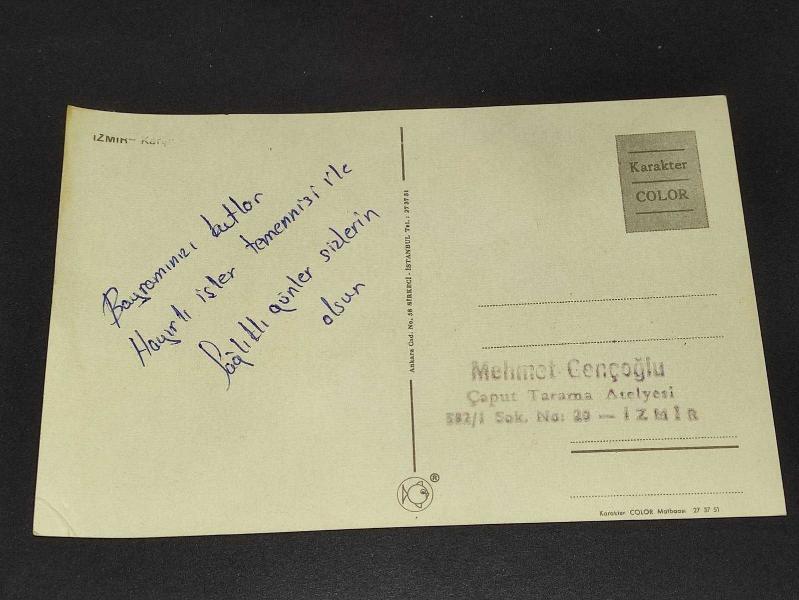 İZMİR-
Bayramınızı kutlar
Hayırlı işler temennisi ile
Sağlıklı günler sizlerin
olsun
Ankara Cad. No. 58 SİRKECİ - İSTANBUL Tel.: 27 37 51
®
Karakter
COLOR
Mehmet Gençoğlu
Çaput Tarama Atelyesi
582/1 Sok. No: 20 — İZMİR
Karakter COLOR Matbaası 27 37 51